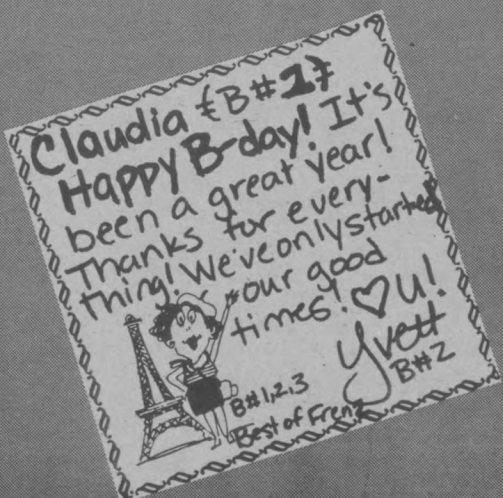 Claudia {B#1}
Happy B-day! It's
been a great year!
Thanks for every-
thing! We've only started
our good
times! ♡ U!
Yvett
B#2
B#1,2,3
Best of Frenz